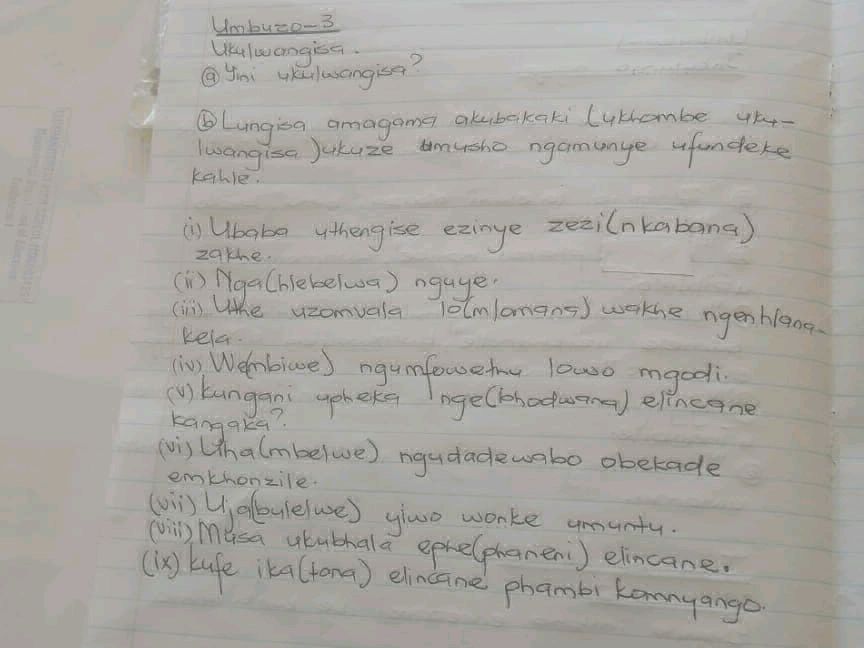 Umbuzo-3
Ukulwangisa.
(a) Yini ukulwangisa?
(b) Lungisa amagama akubakaki (ukhombe uku-
lwangisa) ukuze umusho ngamunye ufundeke
kahle.
(i) Ubaba uthengise ezinye zezi(nkabana)
zakhe.
(ii) Nga(hlebelwa) nguye.
(iii) Uthe uzomvala lo(mlomana) wakhe ngenhlana-
kela.
(iv) We(mbiwe) ngumfowethu lowo mgodi.
(v) Kungani upheka nge(bhodwana) elincane
kangaka?
(vi) Uha(mbelwe) ngudadewabo obekade
emkhonzile.
(vii) Uja(bulelwe) yiwo wonke umuntu.
(viii) Musa ukubhala ephe(phaneni) elincane.
(ix) Kufe ika(tana) elincane phambi komnyango.